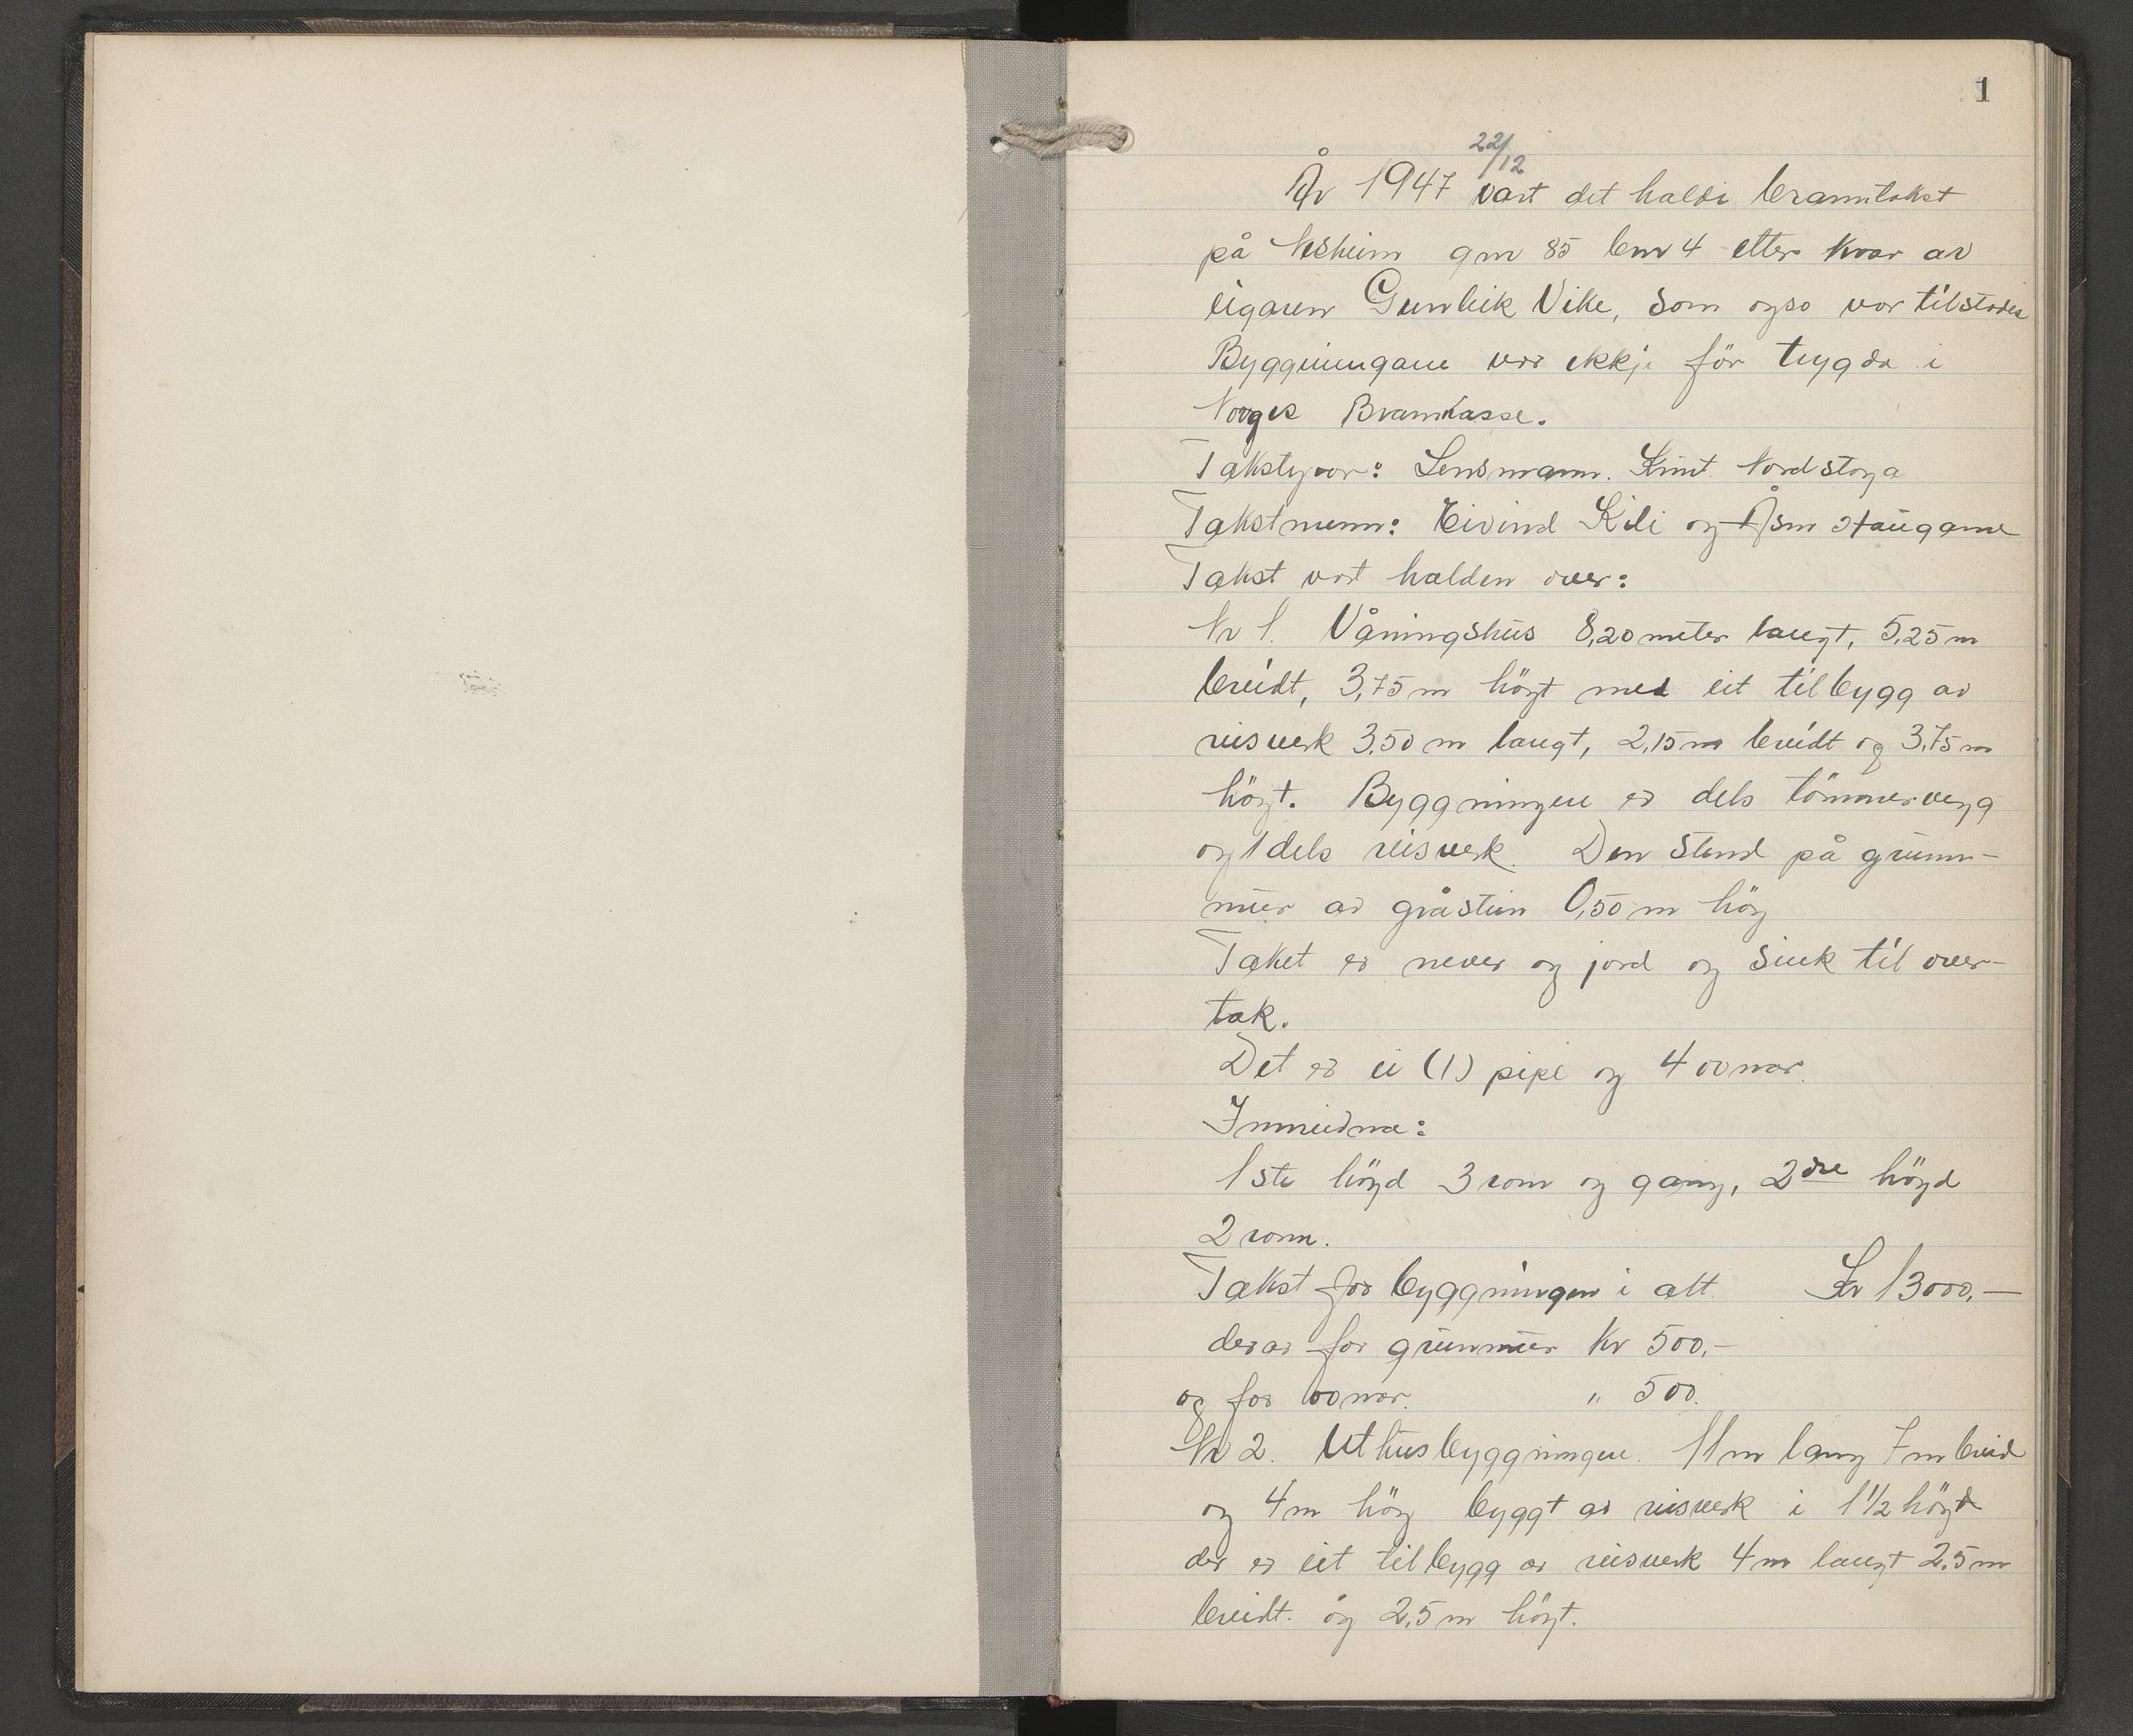 1
22/12
År 1947 vart det haldi branntakst
på Nesheim gnr 85 bnr 4 etter krav av
eigaren Gunleik Vike, som ogso var tilstades
Byggningane var ikkje för trygda i
Norges Brannkasse.
Takstyvar: Lensmann. Knut Nordstoga
Takstmenn: Eivind Kili og Åsm Haugane
Takst vart halden over:
Nr 1. Våningshus 8,20 meter langt, 5,25 m
breidt, 3,75 m högt med eit tilbygg av
reisverk 3,50 m langt, 2,15 m breidt og 3,75 m
högt. Byggningen er dels tömmervegg
og dels reisverk. Den stend på grunn-
mur av gråstein 0,50 m hög
Taket er never og jord og sink til over-
tak.
Det er ei (1) pipe og 4 ovnar.
Innreidna:
1ste högd 3 rom og gang, 2dre högd
2 rom.
Takst for byggningen i alt. Kr 13000,—
derav for grunnmur Kr 500,—
og for ovnar. " 500.
Nr 2. Uthusbyggningen. 11 m lang 7 m breid
og 4 m hög bygt av reisverk i 1 1/2 högd
der er eit tilbygg av reisverk 4 m langt 2,5 m
breidt. og 2,5 m högt.